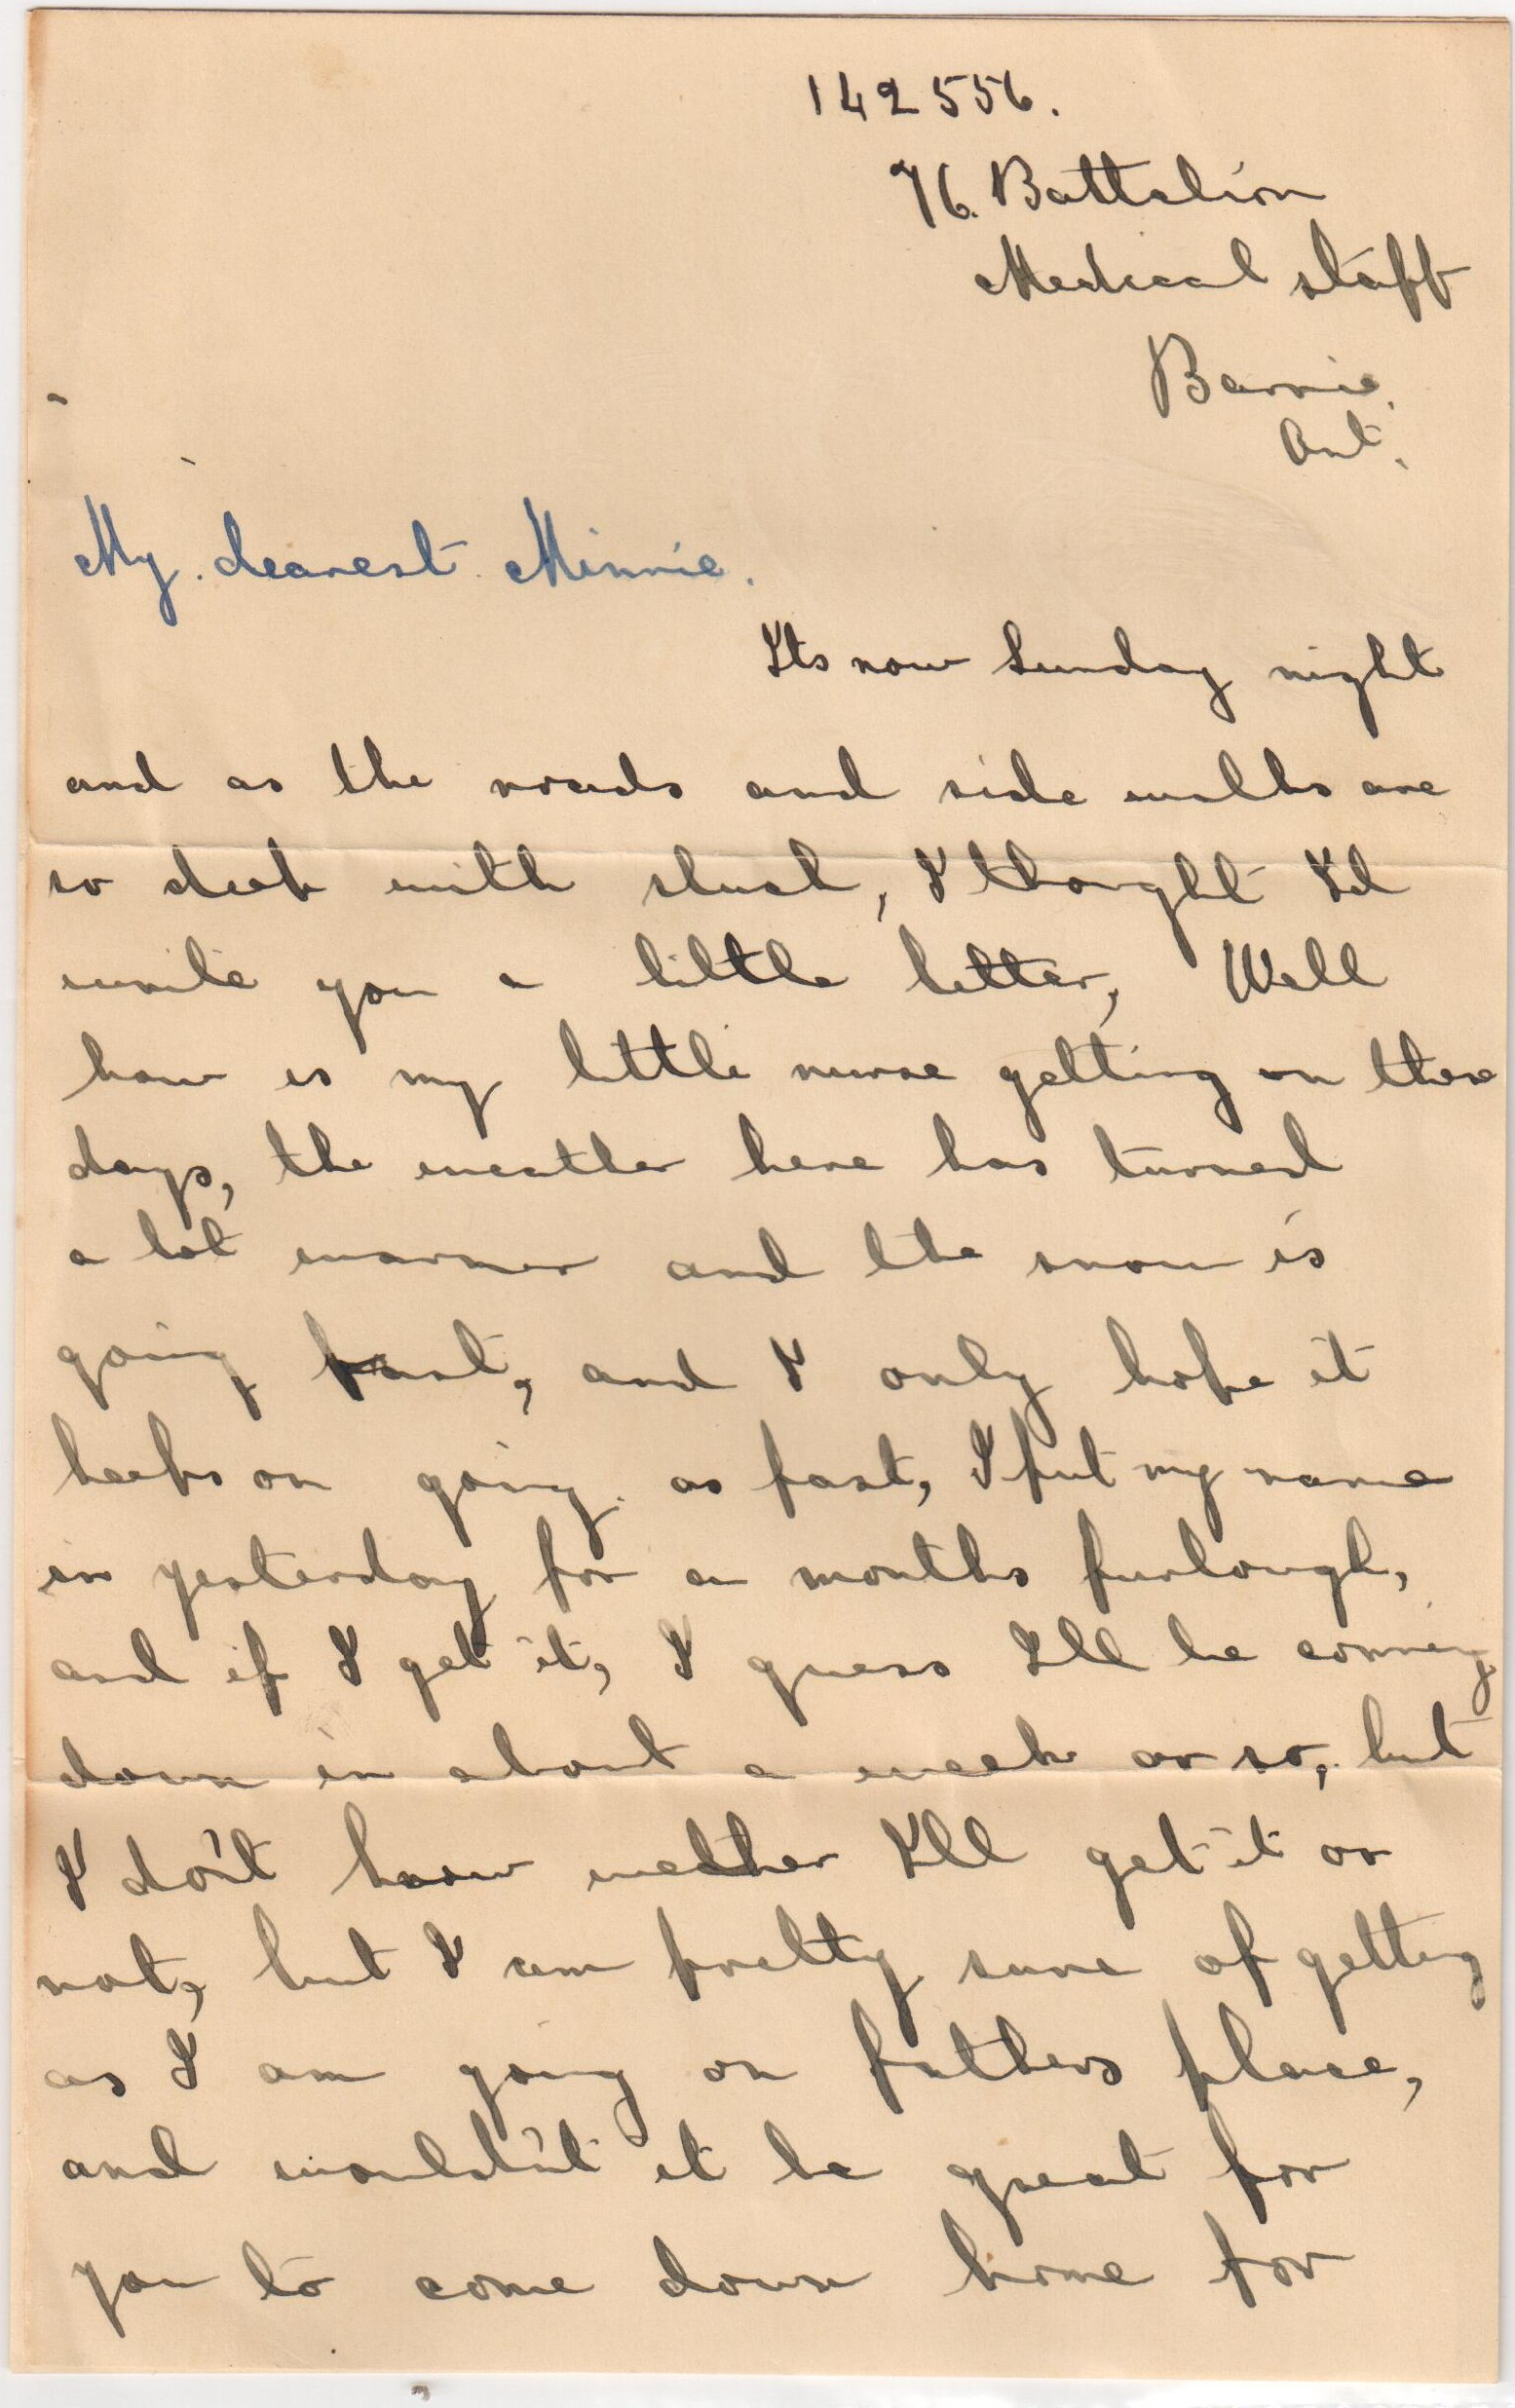 142556.
76. Battalion
Medical staff
Barrie.
Ont.
My. dearest. Minnie.
Its now Sunday night
and as the roads and side walks are
so deep with slush, I thought I'd
write you a little letter, Well
how is my little nurse getting on these
days, the weather here has turned
a lot warmer and the snow is
going fast, and I only hope it
keeps on going. as fast, I put my name
in yesterday for a months furlough,
and if I get it, I guess Ill be coming
down in about a week or so, but
I do'nt know wether Ill get it or
not, but I am pretty sure of getting
as I am going on fathers place,
and would'nt it be great for
you to come down home for